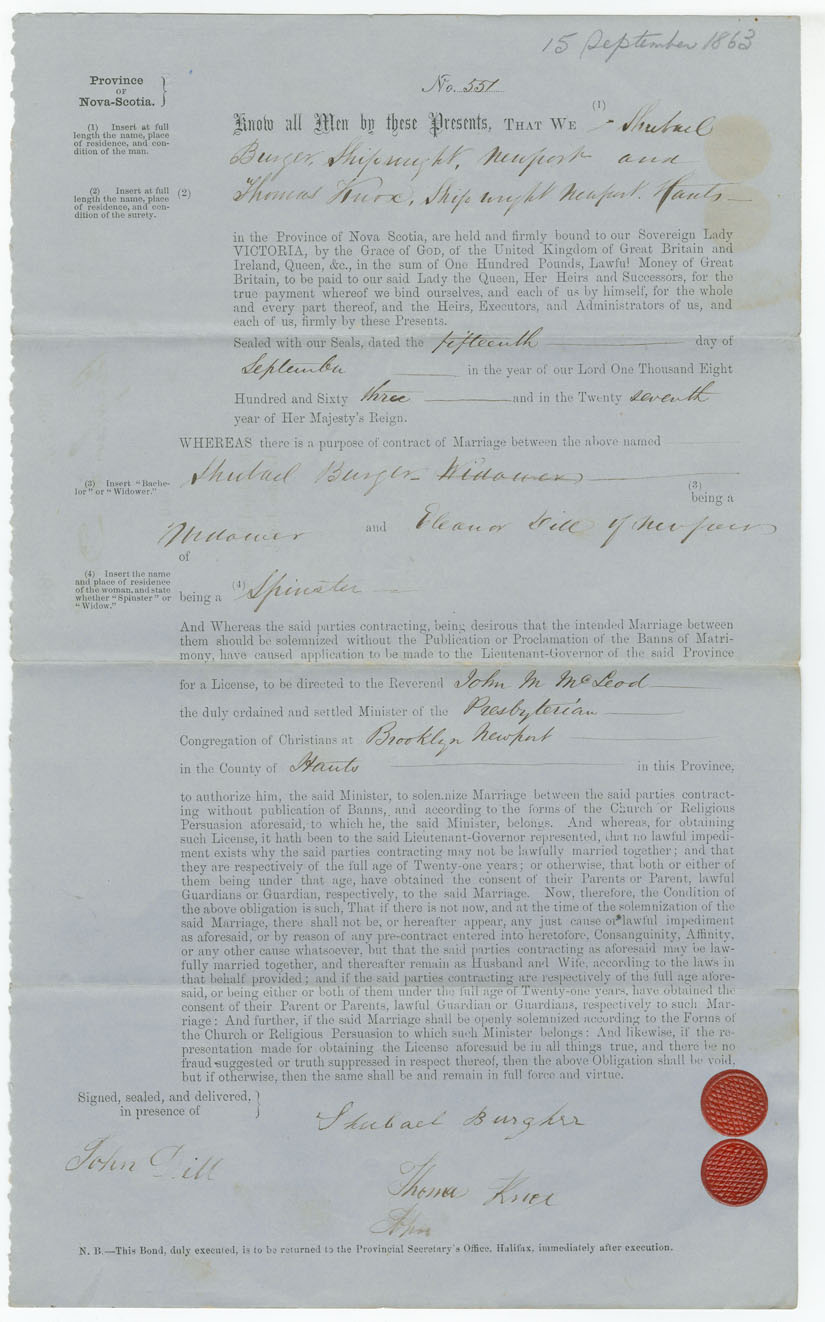 15 September 1863
Province
OF
Nova-Scotia.
No. 551
(1) Insert at full
length the name, place
of residence, and con-
dition of the man.
(1)
Know all Men by these Presents, THAT WE Shubael
Burger, Shipwright, Newport and
(2) Insert at full
length the name, place
of residence, and con-
dition of the surety.
(2)
Thomas Knox, Ship wright Newport. Hants
in the Province of Nova Scotia, are held and firmly bound to our Sovereign Lady
VICTORIA, by the Grace of GOD, of the United Kingdom of Great Britain and
Ireland, Queen, &c., in the sum of One Hundred Pounds, Lawful Money of Great
Britain, to be paid to our said Lady the Queen, Her Heirs and Successors, for the
true payment whereof we bind ourselves, and each of us by himself, for the whole
and every part thereof, and the Heirs, Executors, and Administrators of us, and
each of us, firmly by these Presents.
Sealed with our Seals, dated the fifteenth day of
September in the year of our Lord One Thousand Eight
Hundred and Sixty three and in the Twenty seventh
year of Her Majesty's Reign.
WHEREAS there is a purpose of contract of Marriage between the above named
Shubael Burger Widower
(3) Insert "Bache-
lor" or "Widower."
(3)
being a
Widower and Eleanor Dill of Newport
of
(4) Insert the name
and place of residence
of the woman, and state
whether "Spinster" or
"Widow."
being a (4) Spinster
And Whereas the said parties contracting, being desirous that the intended Marriage between
them should be solemnized without the Publication or Proclamation of the Banns of Matri-
mony, have caused application to be made to the Lieutenant-Governor of the said Province
for a License, to be directed to the Reverend John M McLeod
the duly ordained and settled Minister of the Presbyterian
Congregation of Christians at Brooklyn Newport
in the County of Hants in this Province,
to authorize him, the said Minister, to solemnize Marriage between the said parties contract-
ing without publication of Banns, and according to the forms of the Church or Religious
Persuasion aforesaid, to which he, the said Minister, belongs. And whereas, for obtaining
such License, it hath been to the said Lieutenant-Governor represented, that no lawful impedi-
ment exists why the said parties contracting may not be lawfully married together; and that
they are respectively of the full age of Twenty-one years; or otherwise, that both or either of
them being under that age, have obtained the consent of their Parents or Parent, lawful
Guardians or Guardian, respectively, to the said Marriage. Now, therefore, the Condition of
the above obligation is such, That if there is not now, and at the time of the solemnization of the
said Marriage, there shall not be, or hereafter appear, any just cause or lawful impediment
as aforesaid, or by reason of any pre-contract entered into heretofore, Consanguinity, Affinity,
or any other cause whatsoever, but that the said parties contracting as aforesaid may be law-
fully married together, and thereafter remain as Husband and Wife, according to the laws in
that behalf provided; and if the said parties contracting are respectively of the full age afore-
said, or being either or both of them under the full age of Twenty-one years, have obtained the
consent of their Parent or Parents, lawful Guardian or Guardians, respectively to such Mar-
riage: And further, if the said Marriage shall be openly solemnized according to the Forms of
the Church or Religious Persuasion to which such Minister belongs: And likewise, if the re-
presentation made for obtaining the License aforesaid be in all things true, and there be no
fraud suggested or truth suppressed in respect thereof, then the above Obligation shall be void,
but if otherwise, then the same shall be and remain in full force and virtue.
Signed, sealed, and delivered,
in presence of
Shubael Burgher
John Dill
Thomas Knox
John
N. B.—This Bond, duly executed, is to be returned to the Provincial Secretary's Office, Halifax, immediately after execution.